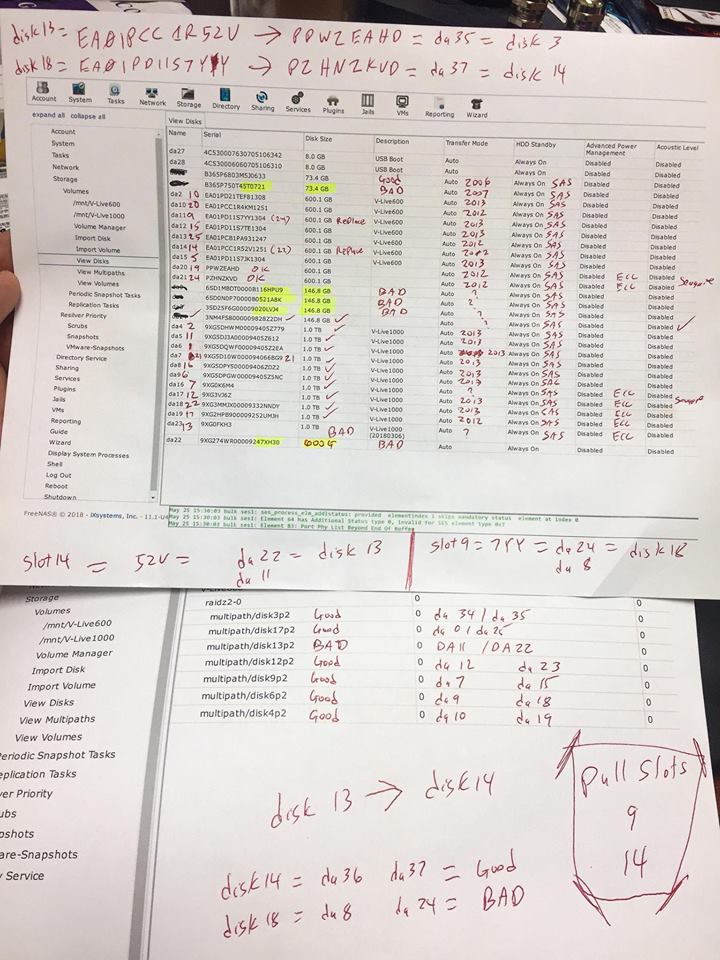 disk 13 = EA01PCC1R52V → PPWZEAHD = da35 = disk 3
disk 18 = EA01PD11S7YY → PZHNZKVD = da37 = disk 14
Account System Tasks Network Storage Directory Sharing Services Plugins Jails VMs Reporting Wizard
expand all collapse all
View Disks
Account
System
Tasks
Network
Storage
Volumes
/mnt/V-Live600
/mnt/V-Live1000
Volume Manager
Import Disk
Import Volume
View Disks
View Multipaths
View Volumes
Periodic Snapshot Tasks
Replication Tasks
Resilver Priority
Scrubs
Snapshots
VMware-Snapshots
Directory Service
Sharing
Services
Plugins
Jails
VMs
Reporting
Guide
Wizard
Display System Processes
Shell
Log Out
Reboot
Shutdown
Name Serial Disk Size Description Transfer Mode HDD Standby Advanced Power Management Acoustic Level
da27 4C530007630705106342 8.0 GB USB Boot Auto Always On Disabled Disabled
da28 4C530006060705106310 8.0 GB USB Boot Auto Always On Disabled Disabled
B365P6803M5J0633 73.4 GB Good Auto 2006 Always On SAS Disabled Disabled
B365P750T45T0721 73.4 GB BAD Auto 2007 Always On SAS Disabled Disabled
da2 EA01PD21TEFB1308 600.1 GB V-Live600 Auto 2013 Always On SAS Disabled Disabled
da10 20 EA01PCC1R4KM1251 600.1 GB V-Live600 Auto 2012 Always On SAS Disabled Disabled
da11 9 EA01PD11S7YY1304 (24) Replace 600.1 GB V-Live600 Auto 2013 Always On SAS Disabled Disabled
da12 15 EA01PD11S7TE1304 600.1 GB V-Live600 Auto 2013 Always On SAS Disabled Disabled
da13 25 EA01PCB1PA931247 600.1 GB V-Live600 Auto 2012 Always On SAS Disabled Disabled
da14 14 EA01PCC1R52V1251 (22) Replace 600.1 GB V-Live600 Auto 2012 Always On SAS Disabled Disabled
da15 5 EA01PD11S7JK1304 600.1 GB V-Live600 Auto 2013 Always On SAS Disabled Disabled
da20 19 PPWZEAHD OK 600.1 GB Auto 2012 Always On SAS Disabled ECC Disabled
da21 24 PZHNZKVD OK 600.1 GB Auto 2012 Always On SAS Disabled ECC Disabled
6SD1MBDT0000B116HPU9 146.8 GB BAD Auto ? Always On SAS Disabled Disabled
6SD0NDP7000080521A8K 146.8 GB BAD Auto ? Always On SAS Disabled Disabled
3SD25F6G00009020LVJ4 146.8 GB BAD Auto ? Always On SAS Disabled Disabled
3NM4FS8000009828Z2DH 146.8 GB Auto Always On SAS Disabled Disabled
da4 2 9XG5DHWM00009405Z779 1.0 TB V-Live1000 Auto 2013 Always On SAS Disabled Disabled
da5 11 9XG5DJ3A00009405Z612 1.0 TB V-Live1000 Auto 2013 Always On SAS Disabled Disabled
da6 9XG5DQWF00009405Z2EA 1.0 TB V-Live1000 Auto 2013 Always On SAS Disabled Disabled
da7 21 9XG5D10W0000940668G9 1.0 TB V-Live1000 Auto 2013 Always On SAS Disabled Disabled
da8 16 9XG5DPY500009406ZDZ2 1.0 TB V-Live1000 Auto 2013 Always On SAS Disabled Disabled
da9 6 9XG5DPGW00009405Z5NC 1.0 TB V-Live1000 Auto 2013 Always On SAS Disabled Disabled
da16 7 9XG0K6M4 1.0 TB V-Live1000 Auto ? Always On SAS Disabled ECC Disabled
da17 12 9XG3VJ6Z 1.0 TB V-Live1000 Auto 2013 Always On SAS Disabled ECC Disabled
da18 22 9XG3MMJX00009332NNDY 1.0 TB V-Live1000 Auto 2013 Always On SAS Disabled ECC Disabled
da19 17 9XG2HPB900009252UMJH 1.0 TB V-Live1000 Auto 2012 Always On SAS Disabled ECC Disabled
da23 13 9XG0FKH3 1.0 TB BAD V-Live1000 (20180306) Auto ? Always On SAS Disabled ECC Disabled
da22 9XG274WR00009247XH30 BAD Auto Always On Disabled Disabled
FreeNAS® © 2018 - iXsystems, Inc. - 11.1-U4
May 25 15:30:03 bulk ses1: ses_process_elm_addlstatus: provided elementindex 1 skips mandatory status element at index 0
May 25 15:30:03 bulk ses1: Element 64 has Additional Status type 0, invalid for SES element type 0x7
May 25 15:30:03 bulk ses1: Part Phy List Beyond End Of Buffer
slot 14 = 52V = da22 = disk 13
da 11
slot 9 = 7YY = da24 = disk 18
da 8
Storage
Volumes
/mnt/V-Live600
/mnt/V-Live1000
Volume Manager
Import Disk
Import Volume
View Disks
View Multipaths
View Volumes
Periodic Snapshot Tasks
Replication Tasks
ver Priority
ubs
pshots
are-Snapshots
y Service
raidz2-0 0 0
multipath/disk3p2 Good 0 da 34 / da 35 0
multipath/disk17p2 Good 0 da 0 / da 25 0
multipath/disk13p2 BAD 0 DA11 / DA22 0
multipath/disk12p2 Good 0 da 12 da 23 0
multipath/disk9p2 Good 0 da 7 da 15 0
multipath/disk6p2 Good 0 da 9 da 18 0
multipath/disk4p2 Good 0 da 10 da 19 0
disk 13 → disk 14
disk 14 = da36 da37 = Good
disk 18 = da8 da24 = BAD
Pull Slots
9
14